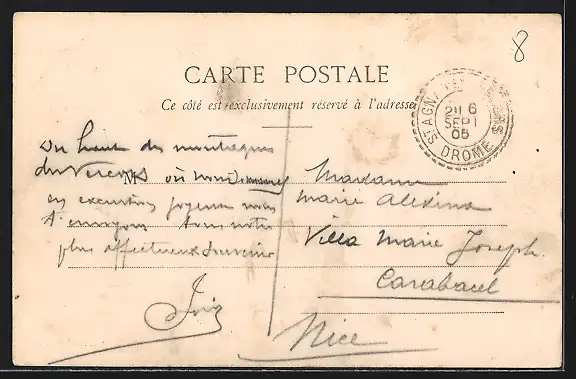 8
CARTE POSTALE
Ce côté est exclusivement réservé à l'adresse
ST AGNAN EN VERCORS
6
SEPT
05
DROME
Du haut des montagnes
du Vercors où nous sommes
en excursion joyeuse nous
t'envoyons tous notre
plus affectueux souvenir
M
Madame
Marie Alexina
Villa Marie Joseph
Carabacel
Nice